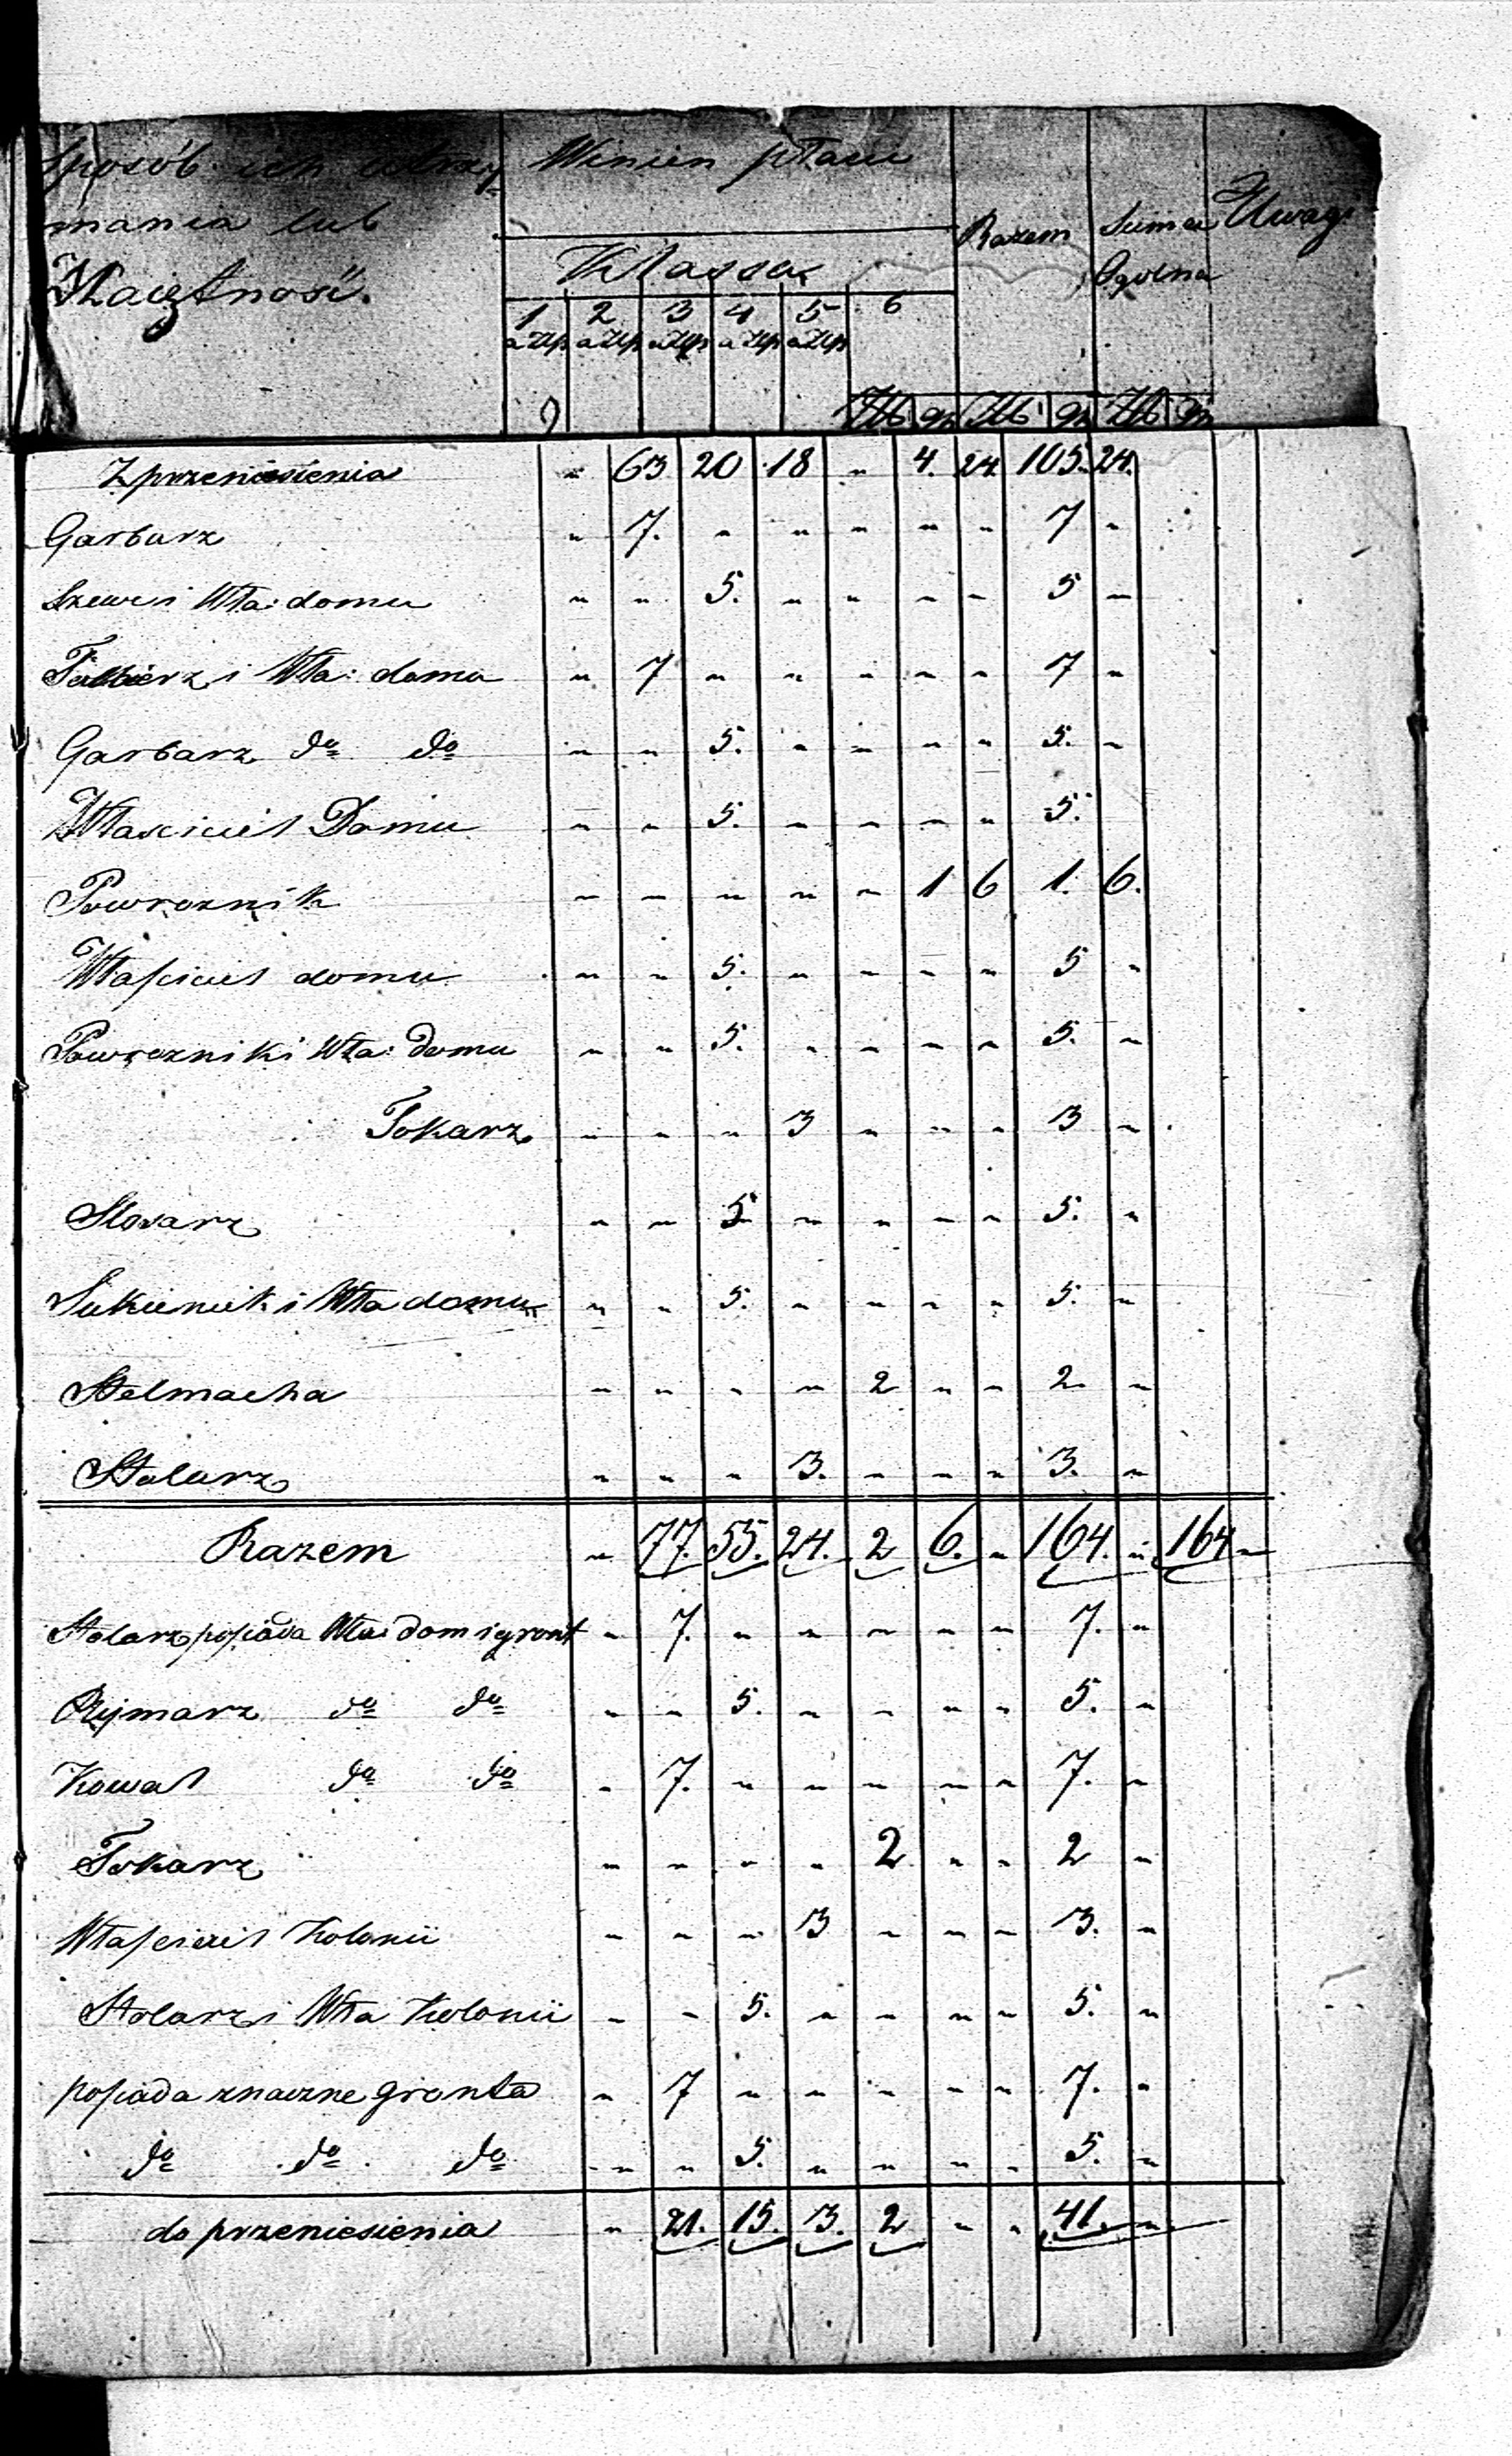 Sposób ich utrzy- Winien płacić
mania lub
Majętność. Klassa Razem Suma Ogólna Uwagi
1 2 3 4 5 6
a Złp a Złp a Złp a Złp a Złp
9 Złt gr Złt gr Złt gr
Z przeniesienia " 63 20 18 " 4. 24 105. 24.
Garbarz " 7. " " " " " 7 "
Szewc i Wła: domu " " 5. " " " " 5 "
i Wła: domu " 7 " " " " " 7 "
Garbarz do do " " 5. " " " " 5. "
Właściciel Domu " " 5. " " " " 5.
Powroznik " " " " " 1 6 1. 6.
Właściciel domu " " 5. " " " " 5 "
Powroznik i Wła: Domu " " 5. " " " " 5. "
Tokarz " " " 3 " " " 3 "
" " 5 " " " " 5. "
Sukiennik i Wła domu " " 5. " " " " 5. "
Stelmacha " " " " 2 " " 2. "
Stolarz " " " 3. " " " 3. "
Razem " 77. 55. 24. 2 6. " 164. " 164 "
Stolarz posiada Wła: dom i gront " 7. " " " " " 7. "
Rymarz do do " " 5. " " " " 5. "
Kowal do do " 7. " " " " " 7. "
Tokarz " " " " 2 " " 2 "
Właściciel Kolonii " " " 3 " " " 3. "
Stolarz i Wła Kolonii " " 5. " " " " 5. "
posiada znaczne gronta " 7 " " " " " 7. "
do do do " " 5. " " " " 5. "
do przeniesienia " 21. 15. 3. 2 " " 41. "